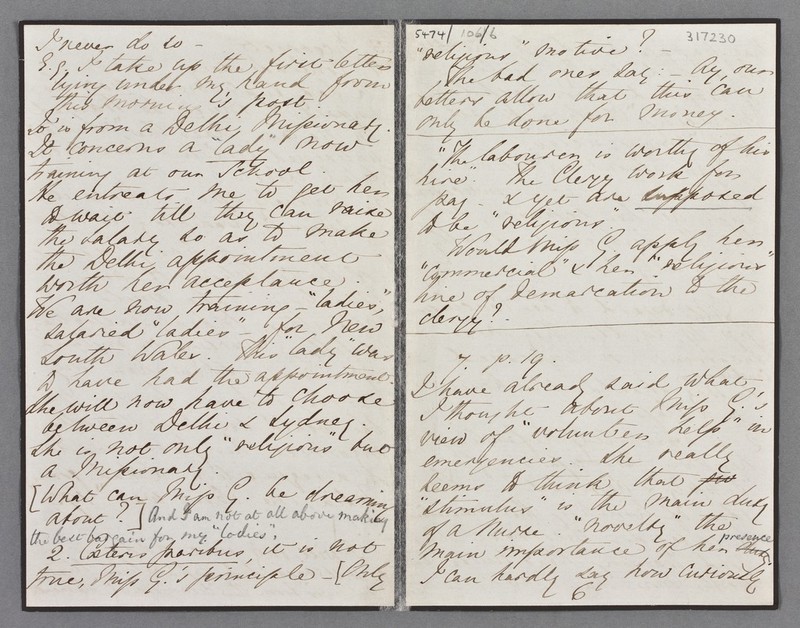 I never do so -
E.g. I take up the first letter
lying under my hand from
this morning's post.
It is from a Delhi Missionary.
It concerns a "lady" now
training at our School.
He entreats me to get her
to wait till they can raise
the salary so as to make
the Delhi appointment
worth her acceptance.
We are now training - "ladies",
salaried "ladies" - for New
South Wales. This "lady" was
to have had the appointment.
She will now have to choose
between Delhi & Sydney.
She is not only "religious" but
a Missionary.
[What can Miss G. be dreaming
about?] And I am not at all above making
the best bargain for my "ladies".
2. Caeteris paribus, it is not
true, Miss G.'s principle - [Only
5474/106/6
317230
"religious" motive? -
The bad ones say: - Ay, our
betters allow that this can
only be done for money.
"The labourer is worthy of his
hire". The Clergy work for
pay - & yet are supposed
to be "religious".
Would Miss G. apply her
"commercial" & her "religious"
line of demarcation to the
clergy?
7. p. 19.
I have already said what
I thought about Miss G.'s
view of "volunteer help" in
emergencies. She really
seems to think that
"stimulus" is the main duty
of a Nurse. "novelty" the
main importance of her presence
I can hardly say how curiously
6